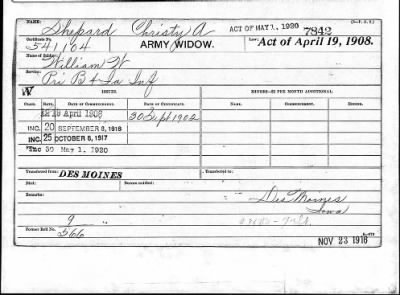 NAME: Shepard Christy A ACT OF MAY 1, 1920 7842
Certificate No. 541104 ARMY WIDOW. Law: Act of April 19, 1908.
Name of Soldier: William W
Service: Pri B 4 Ia Inf
W ISSUES. MINORS—$2 PER MONTH ADDITIONAL.
CLASS. RATE. DATE OF COMMENCEMENT. DATE OF CERTIFICATE. NAME. COMMENCEMENT. ENDING.
12 19 April 1908 30 Sept 1902
INC. 20 SEPTEMBER 8, 1916
INC. 25 OCTOBER 6, 1917
INC 30 May 1, 1920
Transferred from: DES MOINES Transferred to:
Died: Bureau notified:
Remarks: Des Moines
Iowa
9
Former Roll No. 566
NOV 23 1916